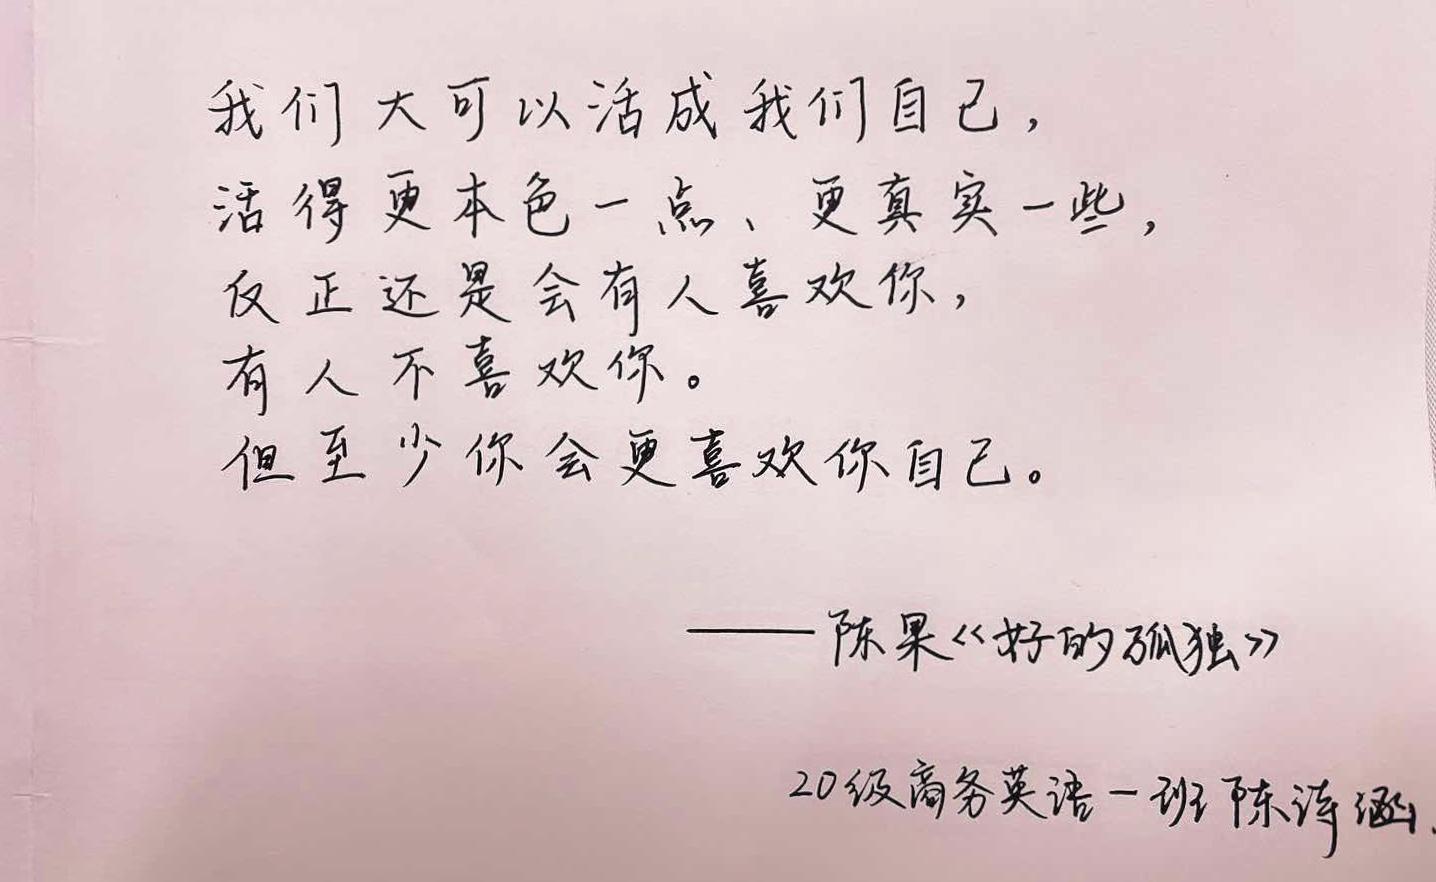 我们大可以活成我们自己，
活得更本色一点、更真实一些，
反正还是会有人喜欢你，
有人不喜欢你。
但至少你会更喜欢你自己。
——陈果《好的孤独》
20级商务英语一班陈诗涵.